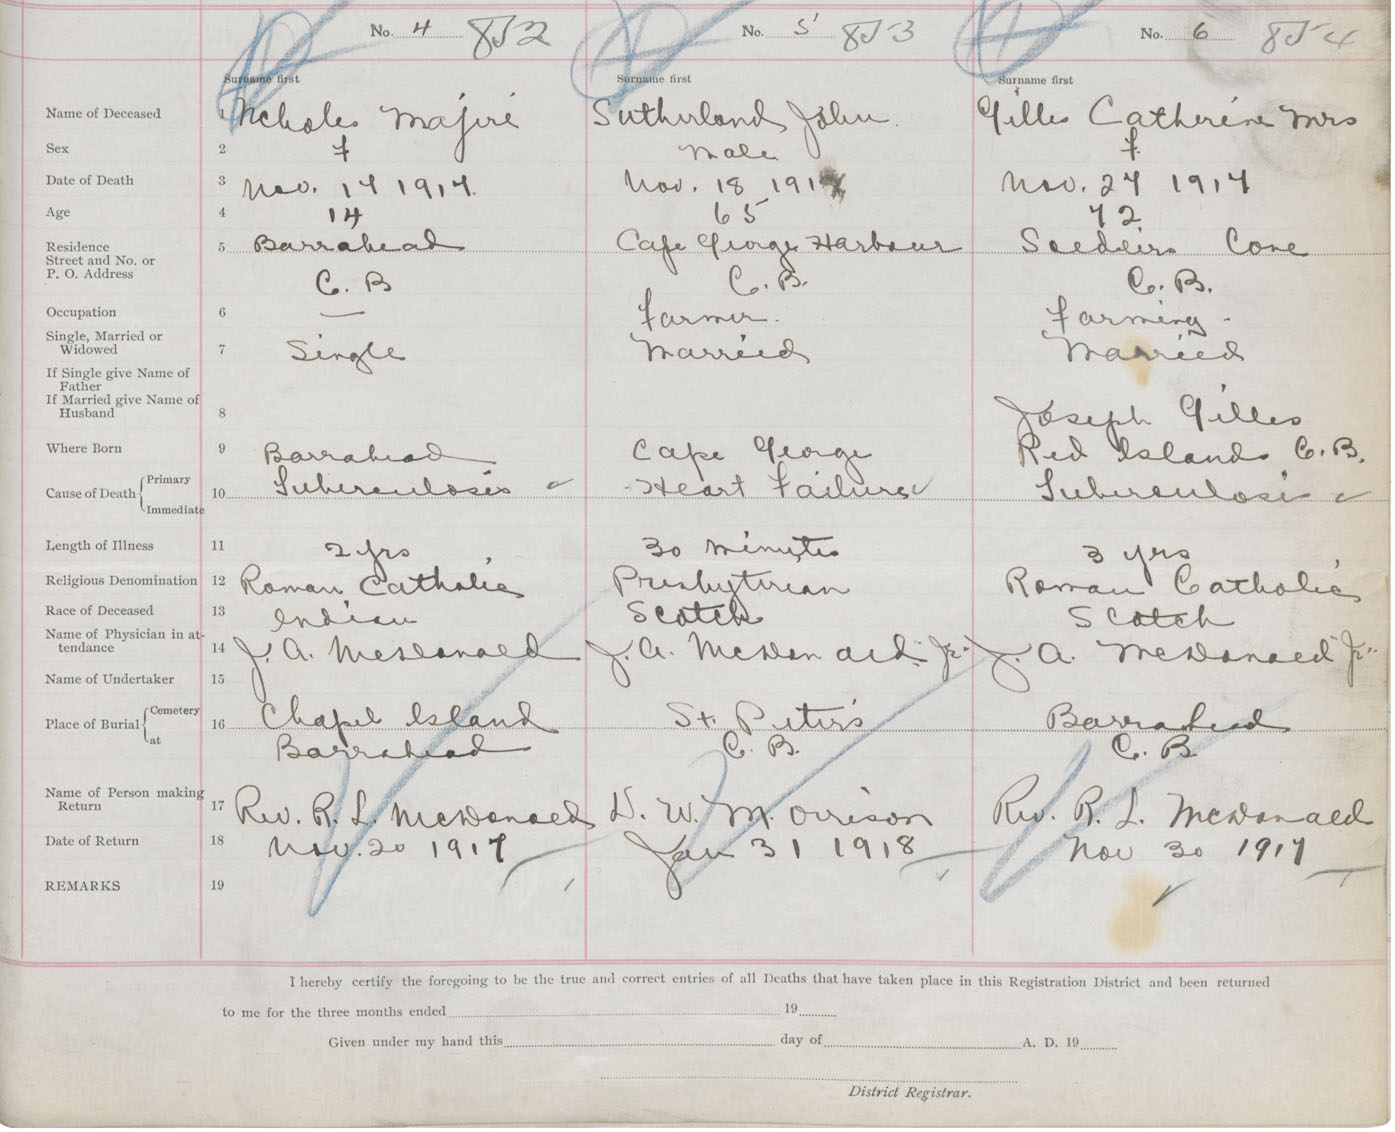 No. 4 852 No. 5 853 No. 6 854
Surname first Surname first Surname first
Name of Deceased 1 Nicholes Majiri Sutherland John Gilles Catherine Mrs
Sex 2 F Male F.
Date of Death 3 Nov. 17 1917. Nov. 18 1917 Nov. 27 1917
Age 4 14 65 72
Residence 5 Barrahead Cape George Harbour Cove
Street and No. or
P. O. Address C. B C. B. C. B.
Occupation 6 — Farmer. Farming.
Single, Married or
Widowed 7 Single Married Married
If Single give Name of
Father
If Married give Name of
Husband 8 Joseph Gilles
Where Born 9 Barrahead Cape George Red Islands C. B.
Cause of Death { Primary
10 Tuberculosis ✓ Heart Failure ✓ Tuberculosis ✓
Immediate
Length of Illness 11 2 yrs 30 minutes 3 yrs
Religious Denomination 12 Roman Catholic Presbyterian Roman Catholic
Race of Deceased 13 Indian Scotch Scotch
Name of Physician in at-
tendance 14 J. A. McDonald J. A. McDonald Jr. J. A. McDonald Jr.
Name of Undertaker 15
Place of Burial { Cemetery
16 Chapel Island St. Peter's Barrahead
at Barrahead C. B. C. B
Name of Person making
Return 17 Rev. R. L. McDonald D. W. Morrison Rev. R. L. McDonald
Date of Return 18 Nov. 20 1917 Jan 31 1918 Nov 30 1917
REMARKS 19
I hereby certify the foregoing to be the true and correct entries of all Deaths that have taken place in this Registration District and been returned
to me for the three months ended 19
Given under my hand this day of A. D. 19
District Registrar.